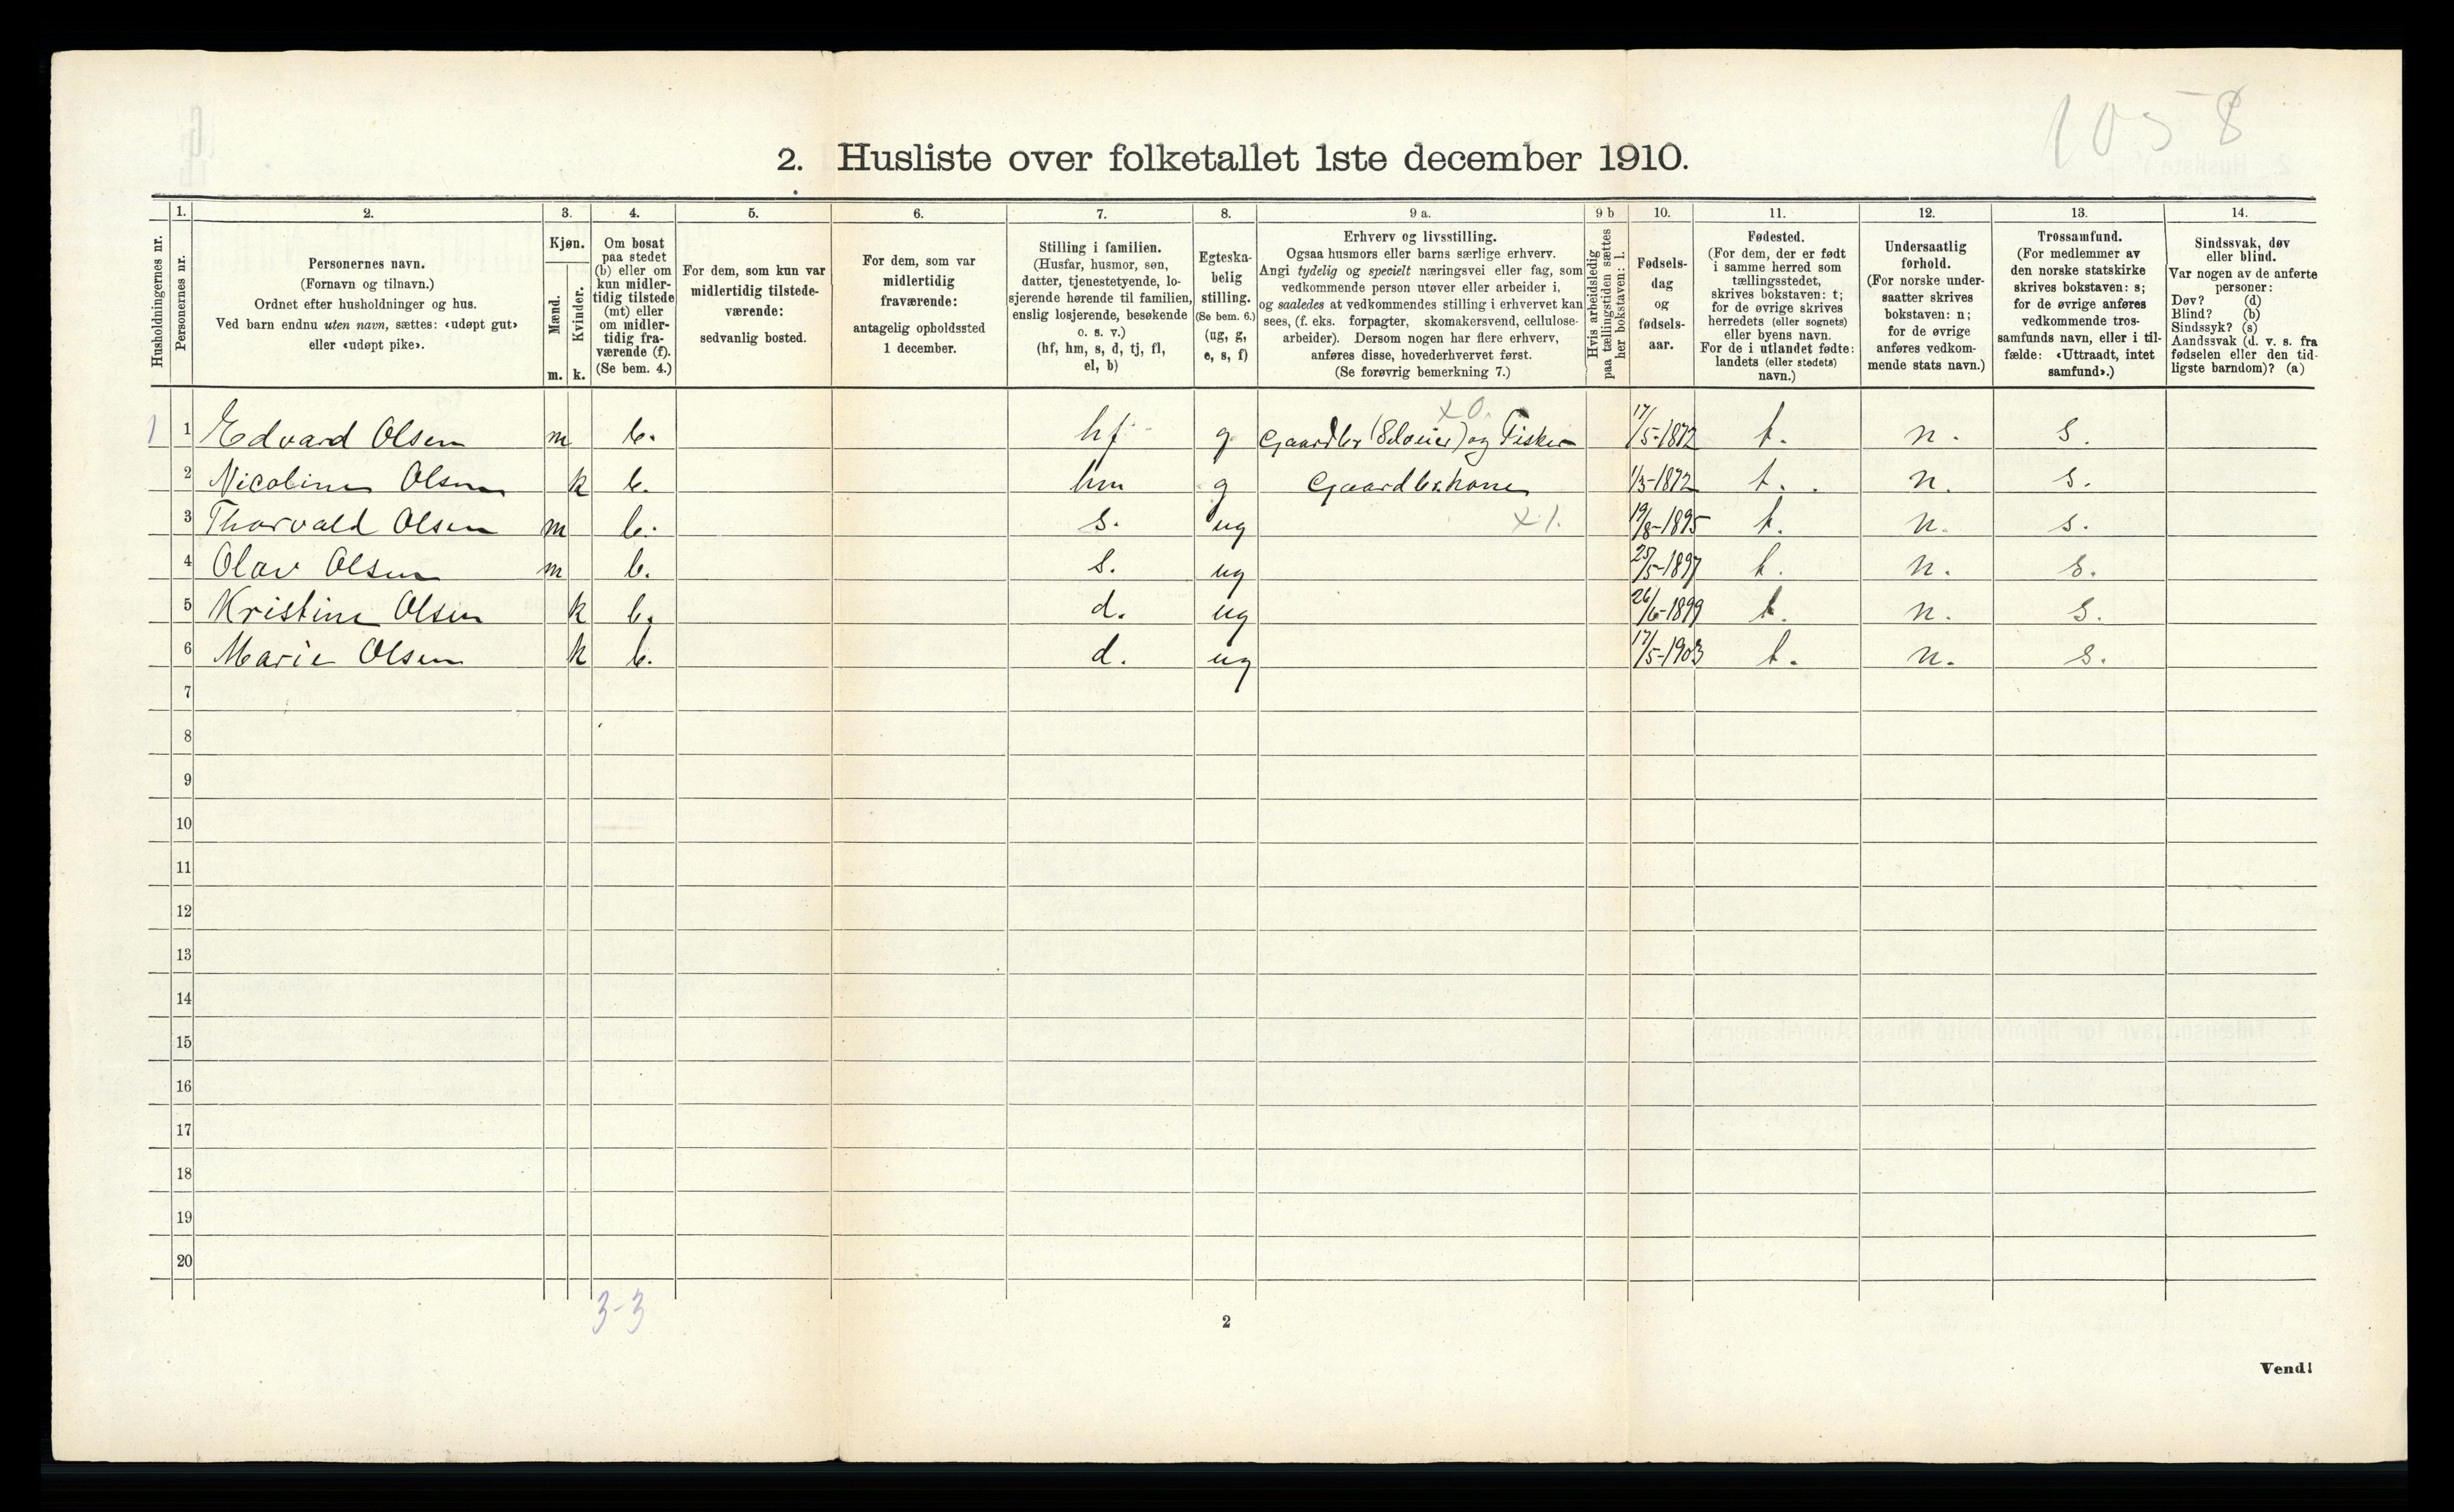 1058
2. Husliste over folketallet 1ste december 1910.
Husholdningernes nr.
1.
Personernes nr.
2.
Personernes navn.
(Fornavn og tilnavn.)
Ordnet efter husholdninger og hus.
Ved barn endnu uten navn, sættes: «udøpt gut»
eller «udøpt pike».
3.
Kjøn.
Mænd.
m.
Kvinder.
k.
4.
Om bosat
paa stedet
(b) eller om
kun midler-
tidig tilstede
(mt) eller
om midler-
tidig fra-
værende (f).
(Se bem. 4.)
5.
For dem, som kun var
midlertidig tilstede-
værende:
sedvanlig bosted.
6.
For dem, som var
midlertidig
fraværende:
antagelig opholdssted
1 december.
7.
Stilling i familien.
(Husfar, husmor, søn,
datter, tjenestetyende, lo-
sjerende hørende til familien,
enslig losjerende, besøkende
o. s. v.)
(hf, hm, s, d, tj, fl,
el, b)
8.
Egteska-
belig
stilling.
(Se bem. 6.)
(ug, g,
e, s, f)
9 a.
Erhverv og livsstilling.
Ogsaa husmors eller barns særlige erhverv.
Angi tydelig og specielt næringsvei eller fag, som
vedkommende person utøver eller arbeider i,
og saaledes at vedkommendes stilling i erhvervet kan
sees, (f. eks. forpagter, skomakersvend, cellulose-
arbeider). Dersom nogen har flere erhverv,
anføres disse, hovederhvervet først.
(Se forøvrig bemerkning 7.)
9 b
Hvis arbeidsledig
paa tællingstiden sættes
her bokstaven: l.
10.
Fødsels-
dag
og
fødsels-
aar.
11.
Fødested.
(For dem, der er født
i samme herred som
tællingsstedet,
skrives bokstaven: t;
for de øvrige skrives
herredets (eller sognets)
eller byens navn.
For de i utlandet fødte:
landets (eller stedets)
navn.)
12.
Undersaatlig
forhold.
(For norske under-
saatter skrives
bokstaven: n;
for de øvrige
anføres vedkom-
mende stats navn.)
13.
Trossamfund.
(For medlemmer av
den norske statskirke
skrives bokstaven: s;
for de øvrige anføres
vedkommende tros-
samfunds navn, eller i til-
fælde: «Uttraadt, intet
samfund».)
14.
Sindssvak, døv
eller blind.
Var nogen av de anførte
personer:
Døv? (d)
Blind? (b)
Sindssyk? (s)
Aandssvak (d. v. s. fra
fødselen eller den tid-
ligste barndom)? (a)
x 0.
1 1 Edvard Olsen m b. hf g Gaardbr (Selveier) og Fisker 17/5-1872 t. n. s.
2 Nicoline Olsen k b. hm g Gaardbr.kone 1/3-1872 t. n. s.
3 Thorvald Olsen m b. s. ug x 1. 19/8-1895 t. n. s.
4 Olav Olsen m b. s. ug 25/5-1897 t. n. s.
5 Kristine Olsen k b. d. ug 26/6-1899 t. n. s.
6 Marie Olsen k b. d. ug 17/5-1903 t. n. s.
7
8
9
10
11
12
13
14
15
16
17
18
19
20
3-3
2
Vend!